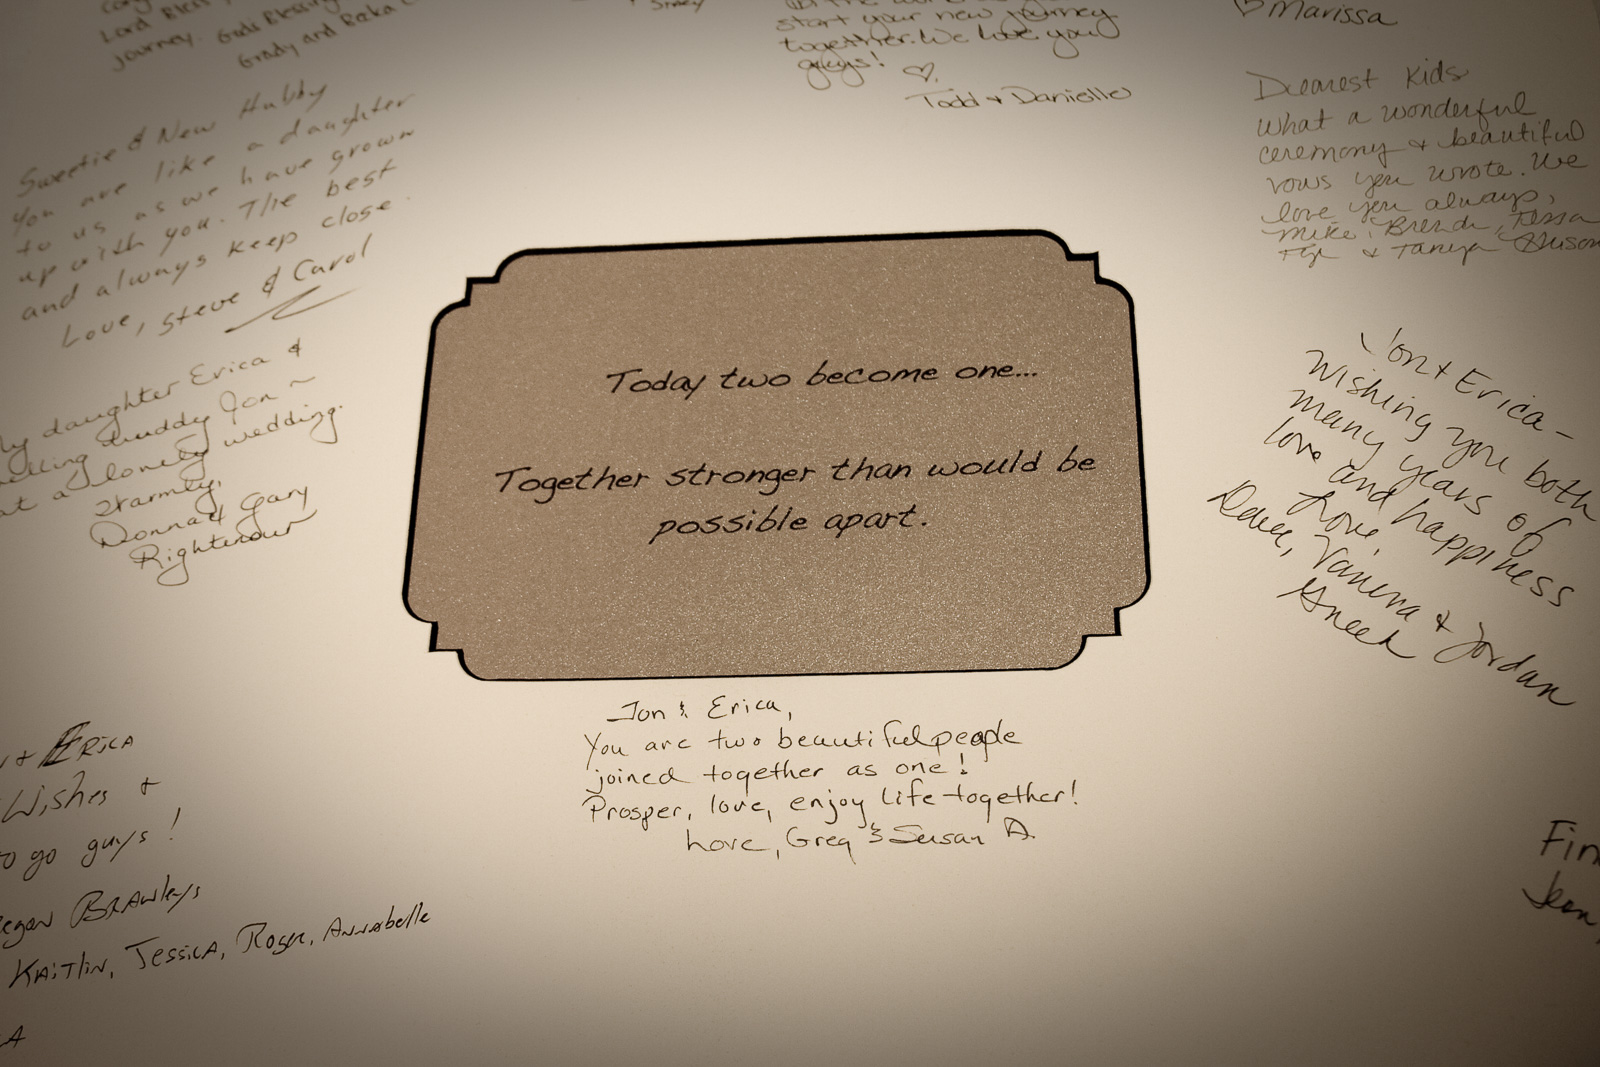 Lord Bless
journey. Gods Blessing
Grady and Reka
start your new journey
together. We love you
guys!
Todd + Danielle
Marissa
Sweetie & New Hubby
You are like a daughter
to us as we have grown
up with you. The best
and always keep close.
Love, Steve & Carol
Dearest Kids
What a wonderful
ceremony & beautiful
vows you wrote. We
love you always,
Mike, Brenda, Tessa
& Tanya
daughter Erica &
buddy Jon ~
at a lovely wedding.
Warmly,
Donna & Gary
Rightenour
Today two become one...
Together stronger than would be
possible apart.
Jon + Erica -
Wishing you both
many years of
love and happiness
Love,
& Jordan
Jon & Erica,
You are two beautiful people
joined together as one!
Prosper, love, enjoy life together!
Love, Greg & Susan D.
+ Erica
Wishes +
to go guys!
Brawleys
Kaitlin, Jessica, Roger, Annabelle